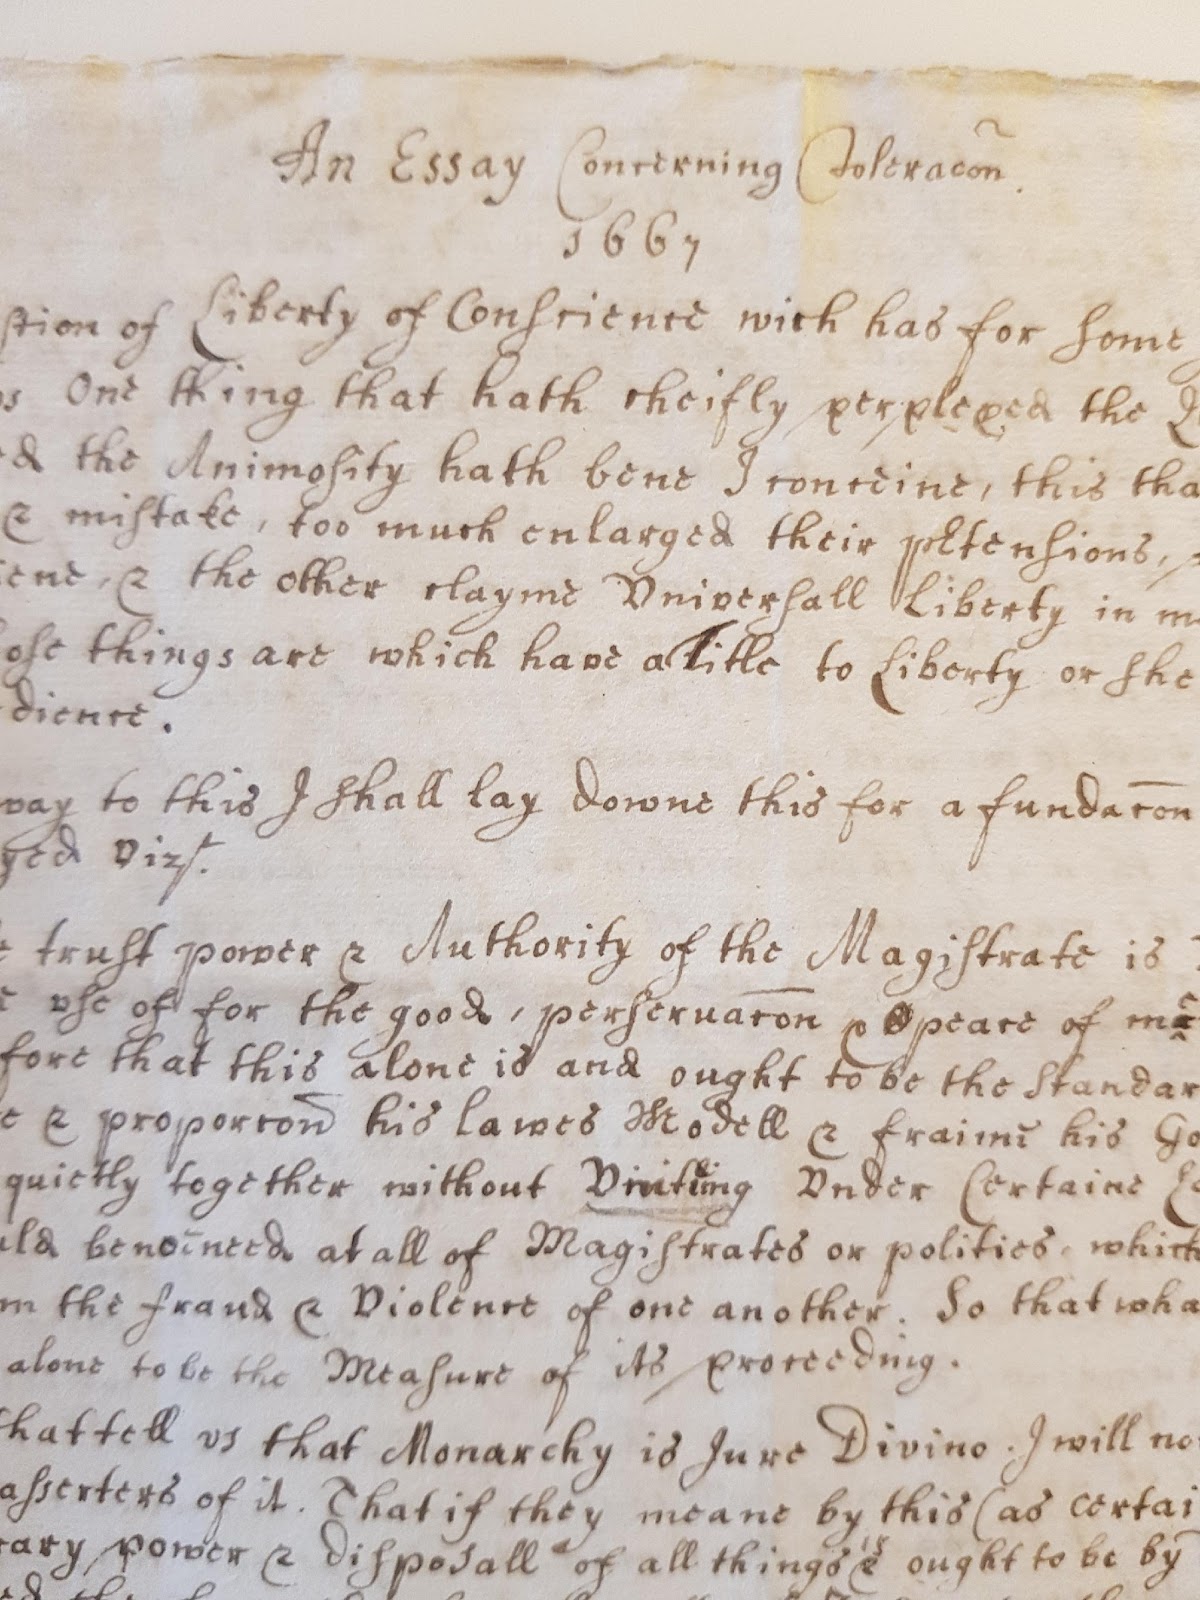 An Essay Concerning Toleracōn
1667
stion of Liberty of Conscience wich has for some
One thing that hath cheifly perplexed the
ed the Animosity hath bene I conceive, this tha
& mistake, too much enlarged their pretensions,
& the other clayme Vniversall Liberty in m
ose things are which have a Title to Liberty or she
dience.
way to this I shall lay downe this for a fundacōn
yed Vizt.
e trust power & Authority of the Magistrate is
e vse of for the good, perservacōn & peace of me
fore that this alone is and ought to be the standar
e & proporcōn his lawes Modell & fraime his Go
quietly together without Vniting Vnder Certaine
uld be noe need at all of Magistrates or polities, which
m the fraud & Violence of one another. So that wha
alone to be the Measure of its proceeding.
that tell vs that Monarchy is Jure Divino. I will no
asserters of it. That if they meane by this (as certai
rary power & disposall of all things is & ought to be by